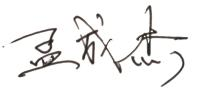 孟成杰